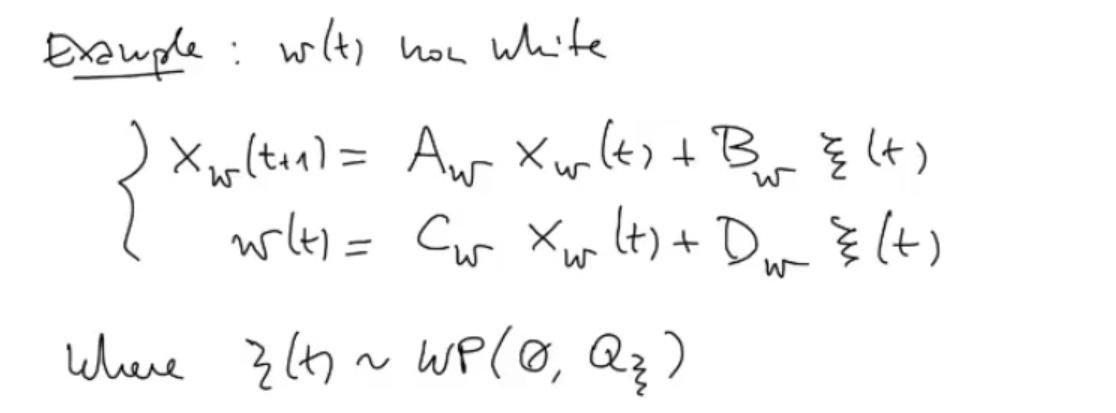 Example : w(t) non white
{ X_w(t+1) = A_w X_w(t) + B_w ξ(t)
w(t) = C_w X_w(t) + D_w ξ(t)
Where ξ(t) ~ WP(0, Q_ξ)